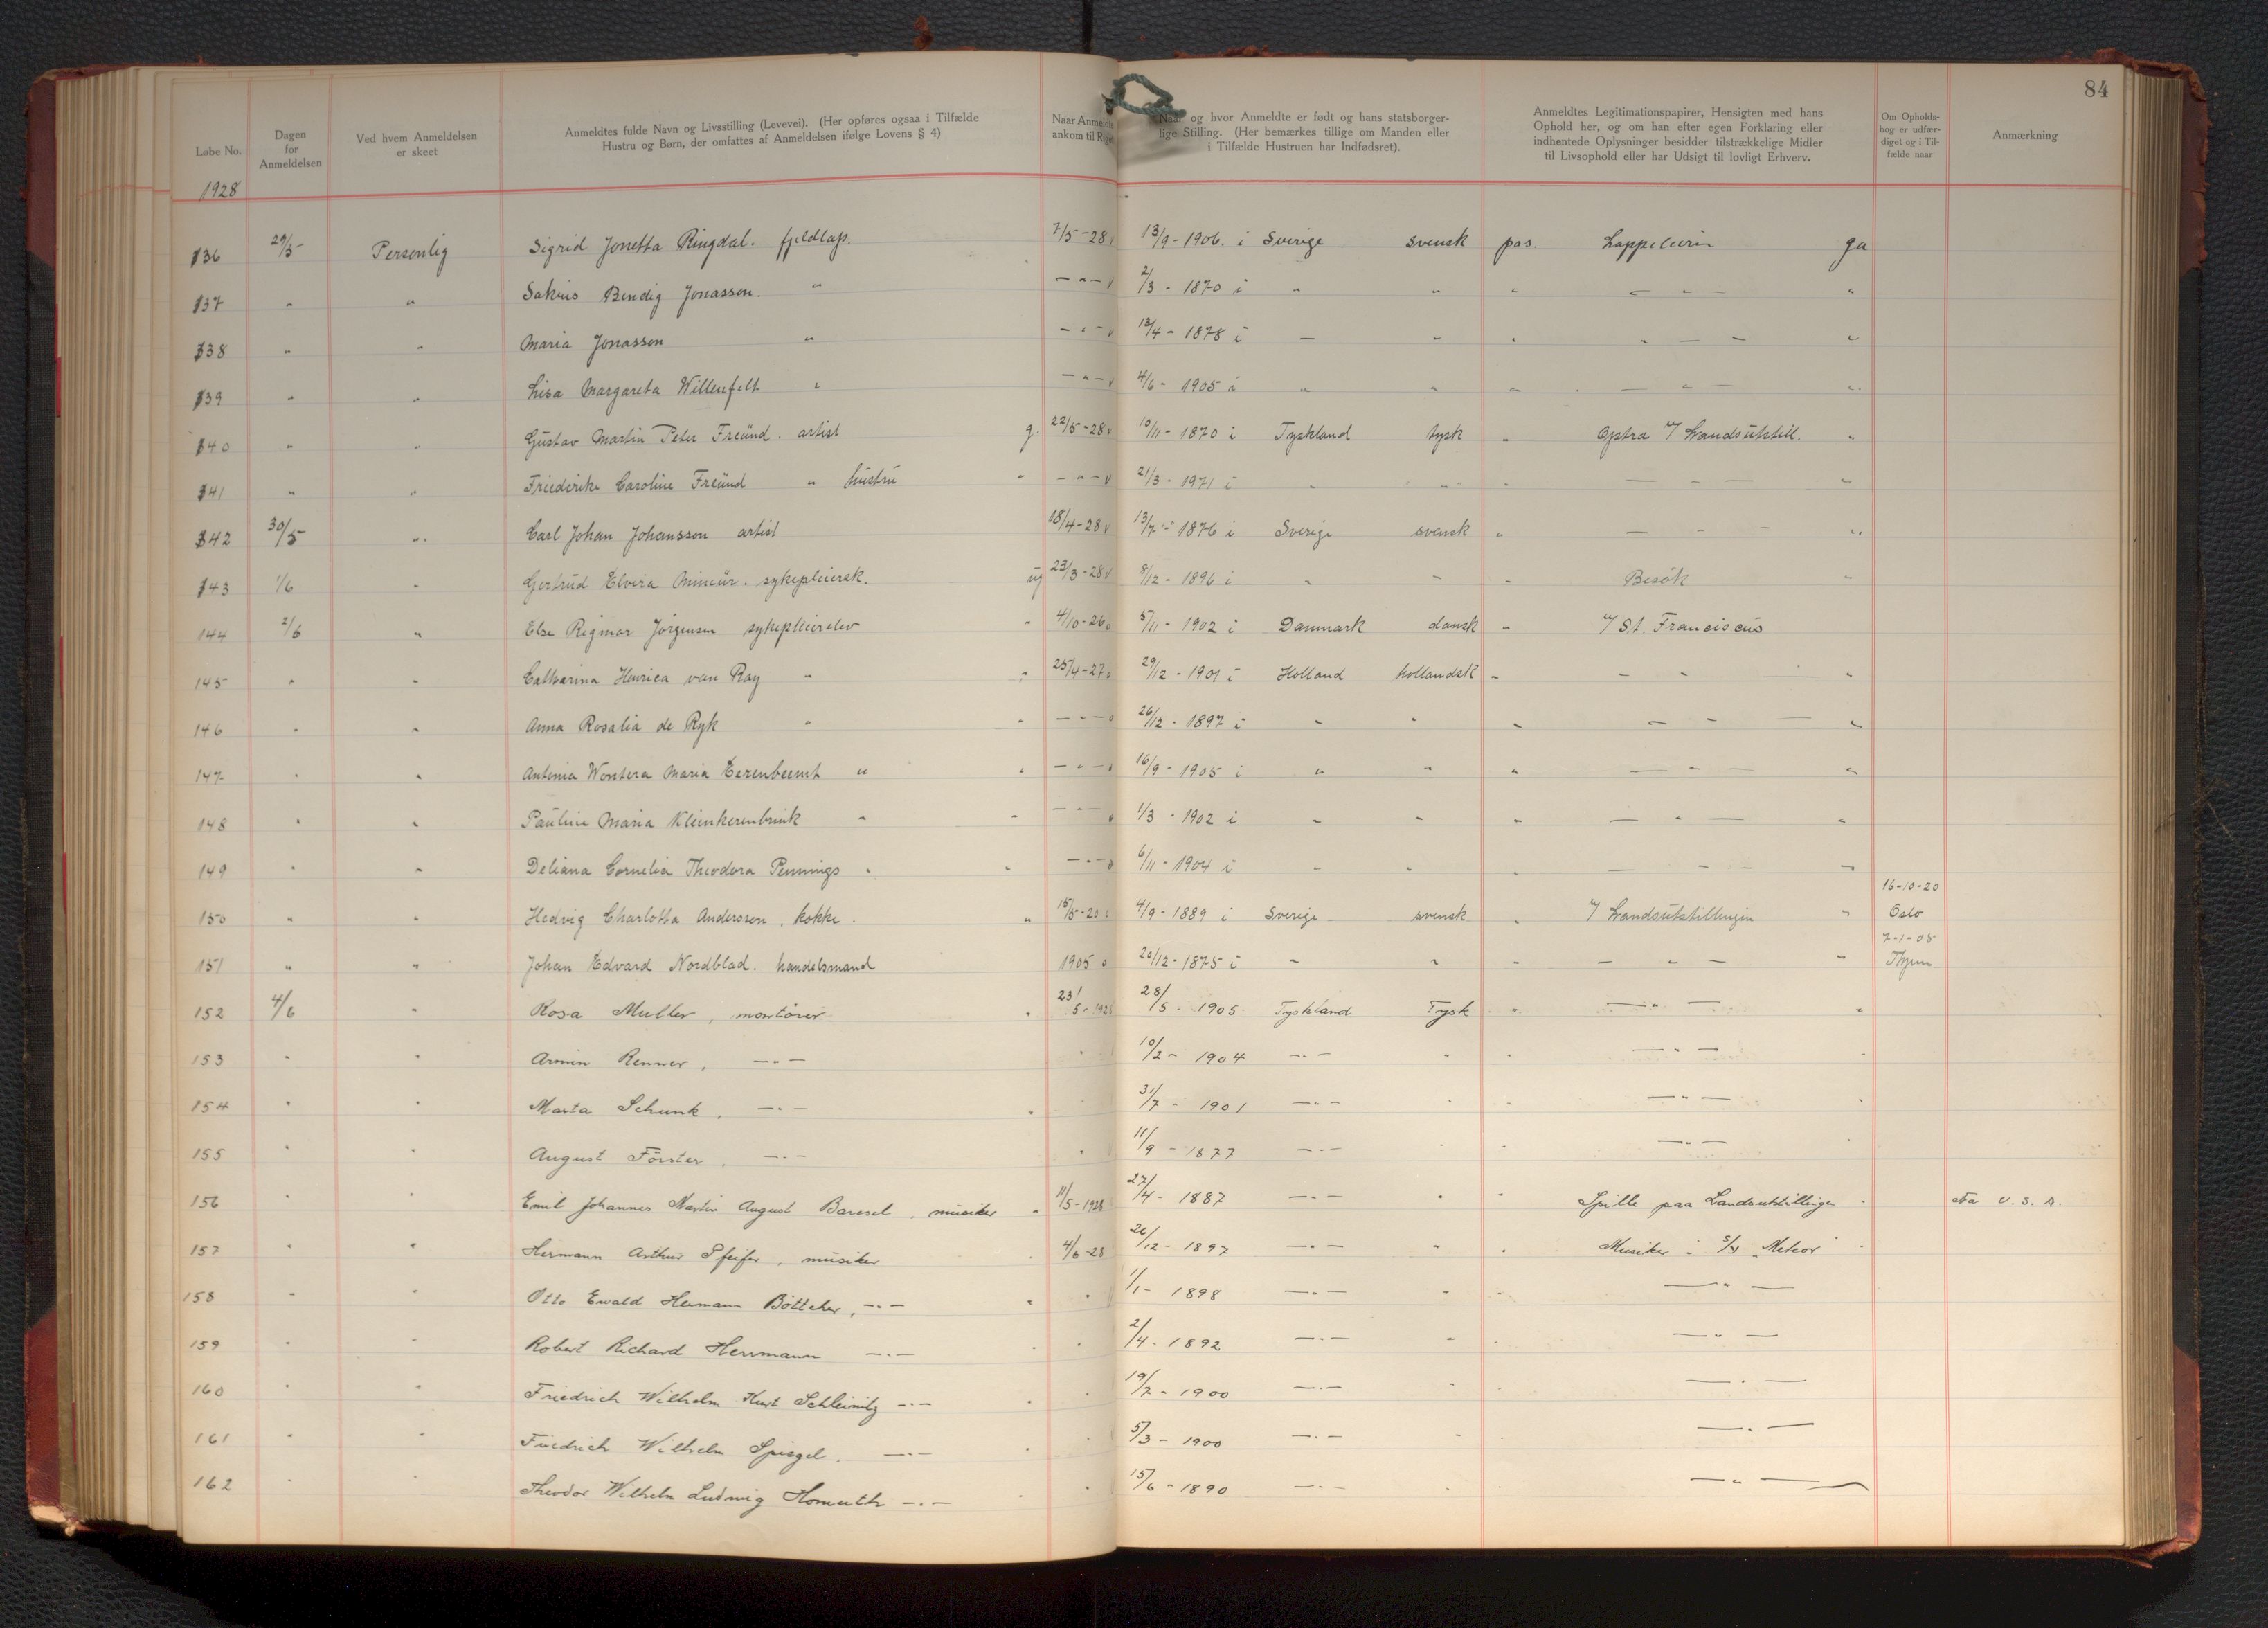 84
Løbe No. | Dagen for Anmeldelsen | Ved hvem Anmeldelsen er skeet | Anmeldtes fulde Navn og Livsstilling (Levevei). (Her opføres ogsaa i Tilfælde Hustru og Børn, der omfattes af Anmeldelsen ifølge Lovens § 4) | Naar Anmeldte ankom til Riget | Naar og hvor Anmeldte er født og hans statsborgerlige Stilling. (Her bemærkes tillige om Manden eller i Tilfælde Hustruen har Indfødsret). | Anmeldtes Legitimationspapirer, Hensigten med hans Ophold her, og om han efter egen Forklaring eller indhentede Oplysninger besidder tilstrækkelige Midler til Livsophold eller har Udsigt til lovligt Erhverv. | Om Opholdsbog er udfærdiget og i Tilfælde naar | Anmærkning
1928
136 29/5 Personlig Sigrid Jonetta Ringdal. fjeldlap. 7/5-28 v 13/9-1906. i Sverige svensk pas. Lappeleirin ja
137 " " Bendig Jonasson. " - " - v 2/3 - 1870 i " " " - " - "
138 " " Maria Jonasson " - " - v 13/4 - 1878 i - " " " - - "
139 " " Lisa Margareta Willenfelt " - " - v 4/6 - 1905 i " " " - " - "
140 " " Gustav Martin Peter Freünd. artist g. 22/5-28 v 10/11 - 1870 i Tyskland tysk " Optræ v/ Landsutstill. "
141 " " Friederike Caroline Freünd " hüstrü " - " - v 21/3 - 1971 i " " " - - - "
142 30/5 " Carl Johan Johansson artist 18/4-28 v 13/7 - 1876 i Sverige svensk " - - - "
143 1/6 " Gertrüd Elvira sykepleiersk. ug 23/3-28 v 8/12 - 1896 i " " " Besök "
144 2/6 " Else Rigmor Jörgensen sykepleierelev " 4/10-26 o 5/11 - 1902 i Danmark dansk " v/ St. Franciscüs
145 " " Catharina Henrica van Ray " " 25/4-27 o 29/12 - 1901 i Holland hollandsk " - " "
146 " " Anna Rosalia de Ryk " " - - - o 26/12 - 1897 i " " " - - - "
147 " " Antonia Maria Eezenbeemt " " - " - o 16/9 - 1905 i " " " - " - "
148 " " Paüline Maria Kleinherenbrink " " - " - o 1/3 - 1902 i " " " - " - "
149 " " Deliana Cornelia Theodora Pennings " " - " - o 6/11 - 1904 i " " " - - "
150 " " Hedvig Charlotta Andersson. kokke. " 15/5-20 o 4/9 - 1889 i Sverige svensk " v/ Landsutstillingin " 16-10-20 Oslo
151 " " Johan Edvard Nordblad. handelsmand 1905 o 20/12 - 1875 i " " " - " - " 7-1-05
152 4/6 " Rosa Muller, montörer " 23/5-1928 28/5 - 1905 Tyskland Tysk " - " - "
153 " " Armin Renner, - " - " 10/2 - 1904 - " - " " - " - "
154 " " Marta Schunk, - " - " " 31/7 - 1901 - " - " " - " - "
155 " " August Förster, - " - " 11/9 - 1877 - " - " " - " -
156 " " Emil Johannes Martin August Baresel, müsiker " 11/5-1928 27/4 - 1887 - " - " " Spille paa Landsutstillingen " Fra U.S.A.
157 " " Hermann Arthur Pfeifer, müsiker 4/6-28 26/12 - 1897 - " - " " Musiker i S/S „Meteor" "
158 " " Otto Ewald Hermann Böttcher, - " - " " 1/1 - 1898 - " - " " - " -
159 " " Robert Richard Herrmann - " - " " 2/4 - 1892 - " - " " - " -
160 " " Friedrich Wilhelm Kurt Schleinitz - " - " " 19/7 - 1900 - " - " " - " -
161 " " Friedrich Wilhelm Spiegel. - " - " " 5/3 - 1900 - " - " " - " -
162 " " Theodor Wilhelm Ludwig Homuth - " - " " 15/6 - 1890 - " - " " - " -